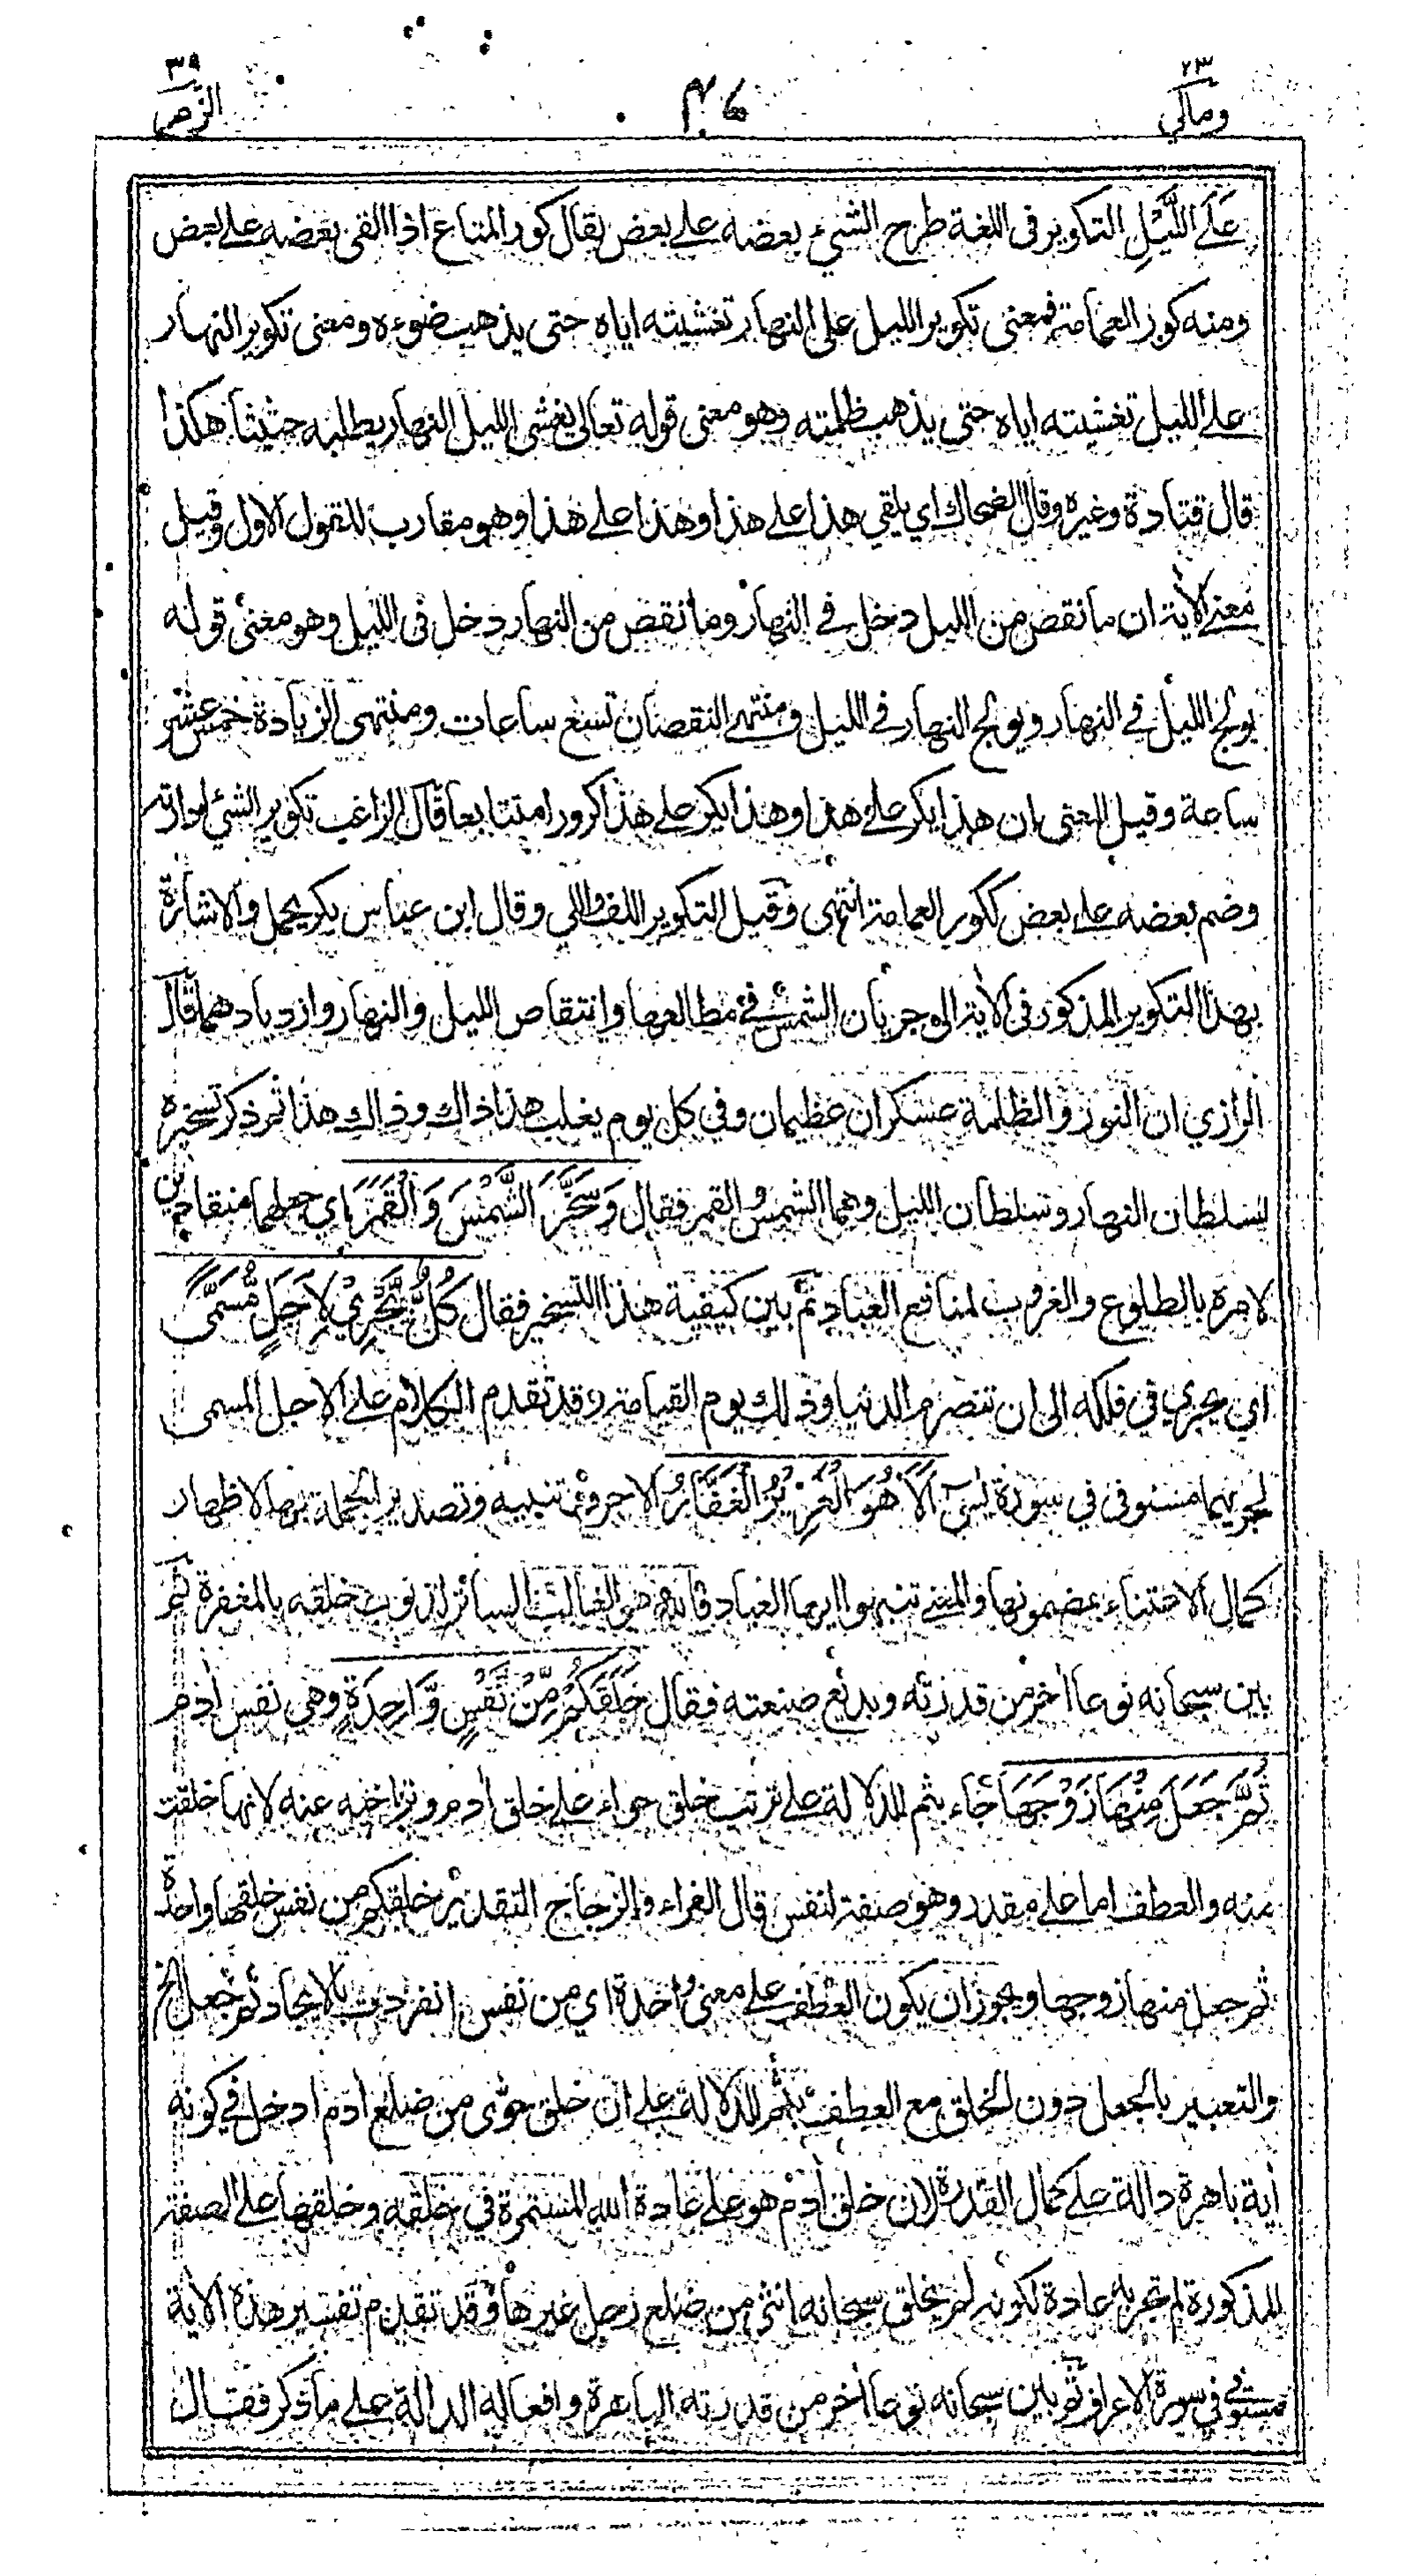 ٢٣ ومالي
٣٩ الزمر
عَلَى اللَّيْلِ التكوير فى اللغة طرح الشيء بعضه على بعض يقال كور المتاع اذا القى بعضه على بعض
ومنه كور العمامة فمعنى تكوير الليل على النهار تغشيته اياه حتى يذهب ضوءه ومعنى تكوير النهار
على الليل تغشيته اياه حتى يذهب ظلمته وهو معنى قوله تعالى يغشى الليل النهار يطلبه حثيثا هكذا
قال قتادة وغيره وقال الضحاك اي يلقي هذا على هذا وهذا على هذا وهو مقارب للقول الاول وقيل
معنى الأية ان ما نقص من الليل دخل في النهار وما نقص من النهار دخل فى الليل وهو معنى قوله
يولج الليل في النهار ويولج النهار في الليل ومنتهى النقصان تسع ساعات ومنتهى الزيادة خمس عشر
ساعة وقيل المعنى ان هذا يكر على هذا وهذا يكر على هذا كرورا متتابعا قال الراغب تكوير الشيء ادارته
وضم بعضه على بعض ككور العمامة انتهى وقيل التكوير اللف واللي وقال ابن عباس يكر يحمل والاشارة
بهذا التكوير المذكور فى الأية الى جريان الشمس في مطالعها وانتقاص الليل والنهار وازديادهما قال
الرازي ان النور والظلمة عسكران عظيمان وفي كل يوم يغلب هذا ذاك وذاك هذا ثم ذكر تسخيره
لسلطان النهار وسلطان الليل وهما الشمس والقمر فقال وَسَخَّرَ الشَّمْسَ وَالْقَمَرَ اي جعلهما منقادين
لامره بالطلوع والغروب لمنافع العباد ثم بين كيفية هذا التسخير فقال كُلٌّ يَّجْرِيْ لِأَجَلٍ مُّسَمًّى
اي يجري في فلكه الى ان تنصرم الدنيا وذلك يوم القيامة وقد تقدم الكلام على الاجل المسمى
لجريهما مستوفى في سورة يس أَلَا هُوَ الْعَزِيْزُ الْغَفَّارُ الا حرف تنبيه وتصدير الجملة بها لاظهار
كمال الاعتناء بمضمونها والمعنى تنبهوا ايها العباد فالله هو الغالب الساتر لذنوب خلقه بالمغفرة ثم
بين سبحانه نوعا اخر من قدرته وبديع صنعته فقال خَلَقَكُمْ مِّنْ نَّفْسٍ وَّاحِدَةٍ وهي نفس أدم
ثُمَّ جَعَلَ مِنْهَا زَوْجَهَا جاء بثم للدلالة على ترتب خلق حواء على خلق أدم وتراخيه عنه لانها خلقت
منه والعطف اما على مقدر وهو صفة لنفس قال الفراء والزجاج التقدير خلقكم من نفس خلقها واحدة
ثم جعل منها زوجها ويجوز ان يكون العطف على معنى واحدة اي من نفس انفردت بالايجاد ثم جعل الخ
والتعبير بالجعل دون الخلق مع العطف بثم للدلالة على ان خلق حوى من ضلع أدم ادخل في كونه
أية باهرة دالة على كمال القدرة لان خلق أدم هو على عادة الله المستمرة في خلقه وخلقها على الصفة
المذكورة لم تجر به عادة لكونه لم يخلق سبحانه انثى من ضلع رجل غيرها وقد تقدم تفسير هذه الأية
مستوفى في سورة الاعراف ثم بين سبحانه نوعا أخر من قدرته الباهرة وافعاله الدالة على ما ذكر فقال